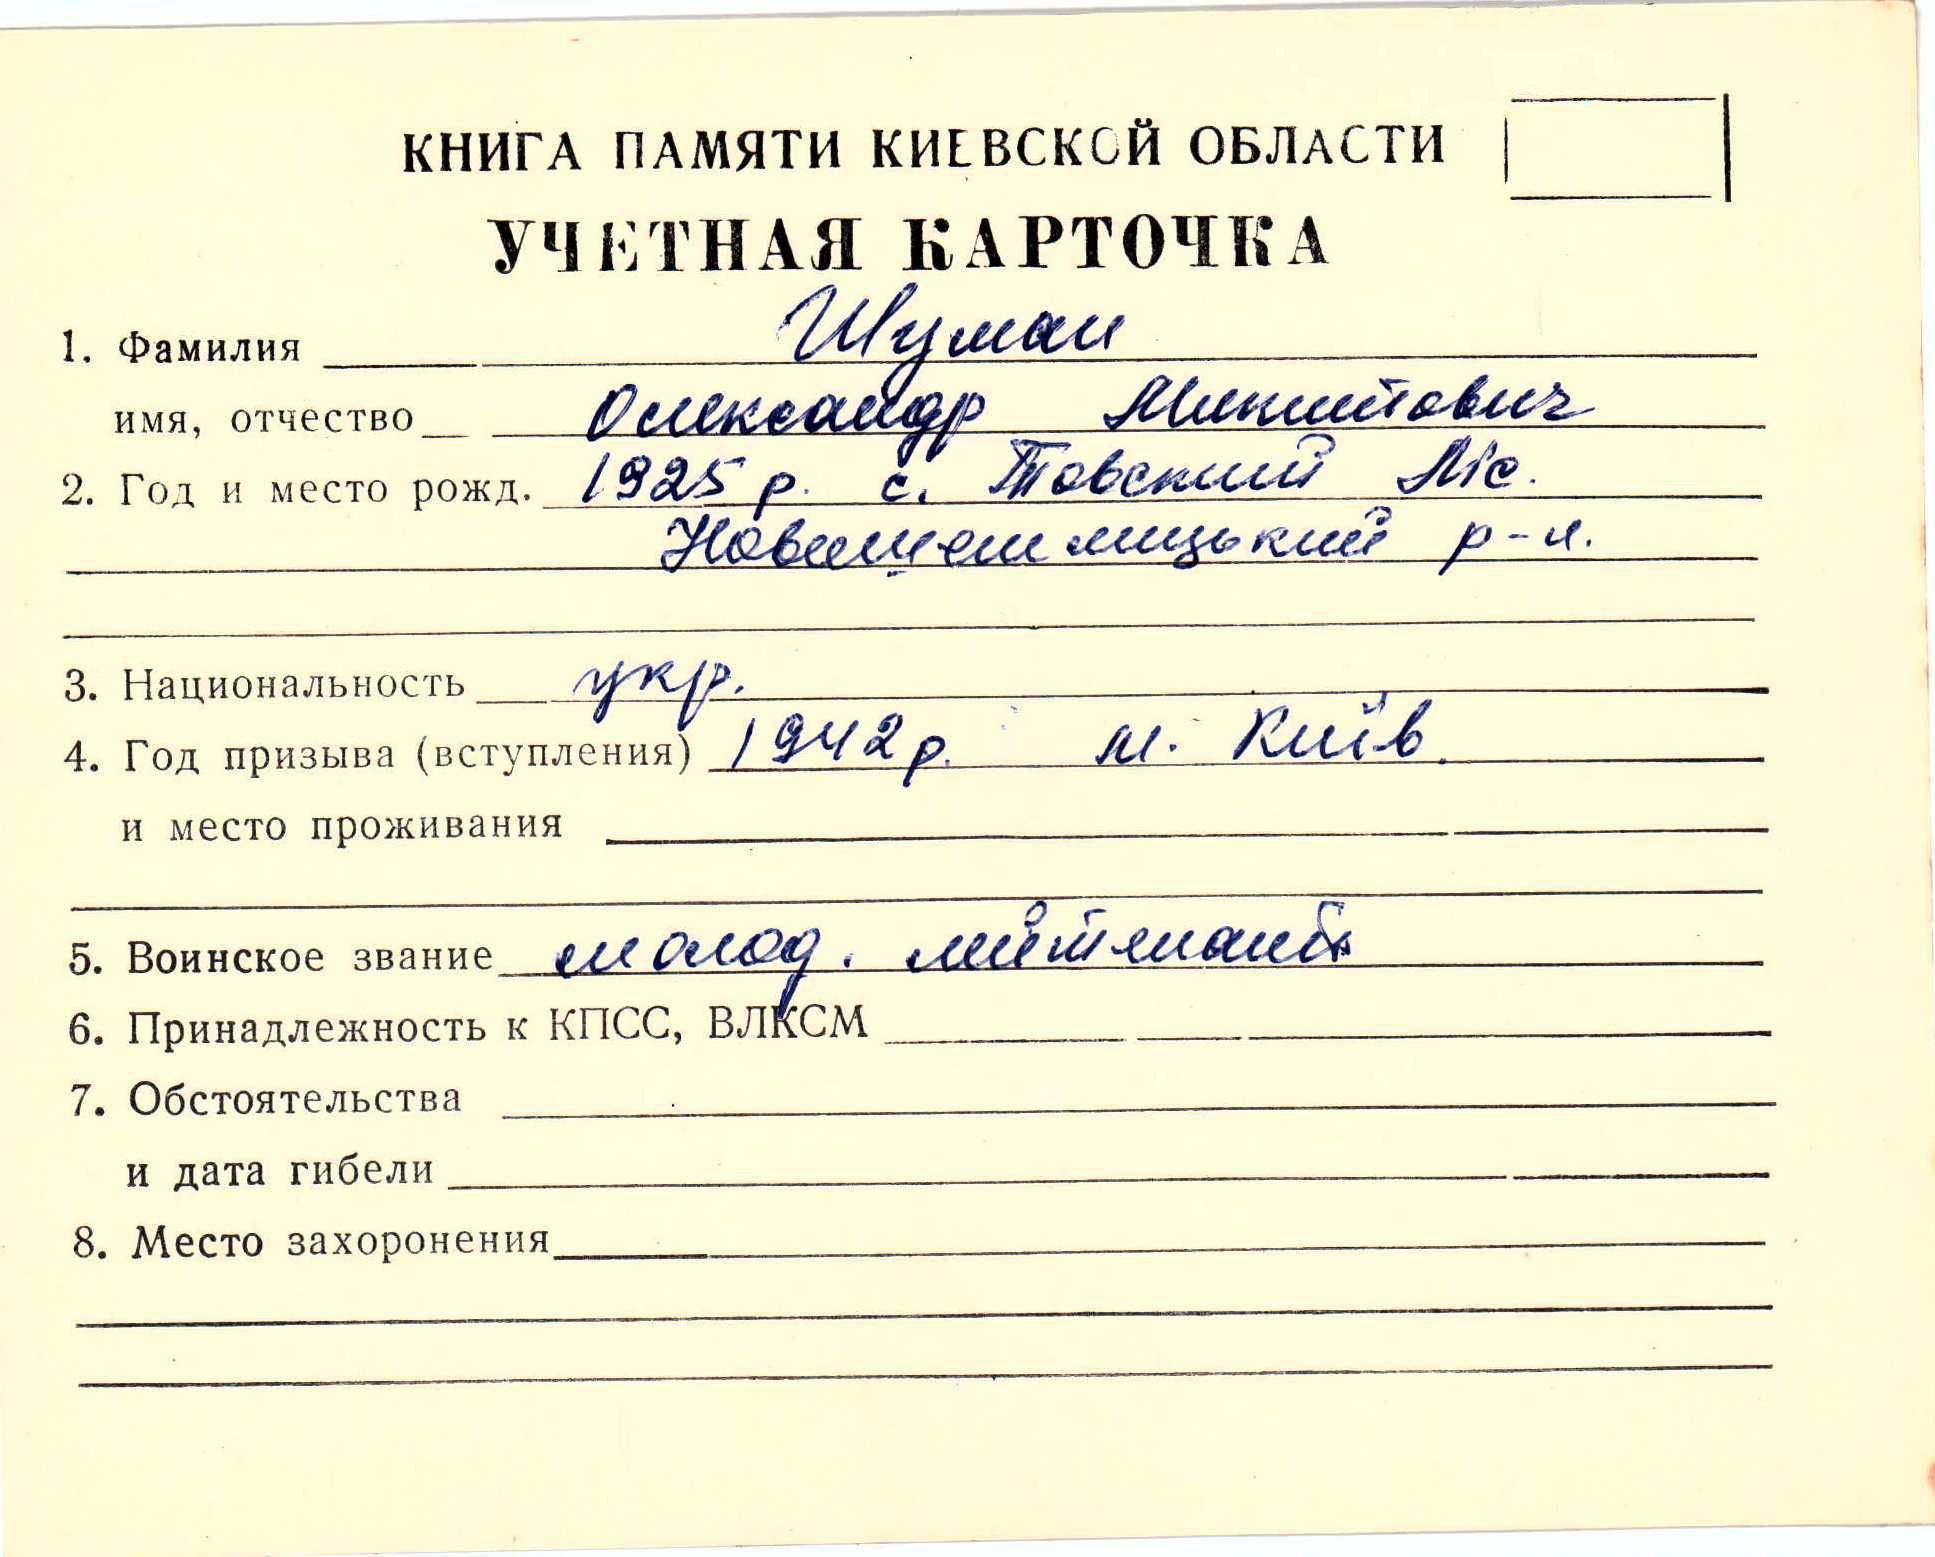 КНИГА ПАМЯТИ КИЕВСКОЙ ОБЛАСТИ
УЧЕТНАЯ КАРТОЧКА
1. Фамилия Шуман
имя, отчество Олександр Микитович
2. Год и место рожд. 1925 р. с. Товский Ліс.
Новошепелицький р-н.
3. Национальность укр.
4. Год призыва (вступления) 1942 р. м. Київ.
и место проживания
5. Воинское звание молод. лейтенант
6. Принадлежность к КПСС, ВЛКСМ
7. Обстоятельства
и дата гибели
8. Место захоронения